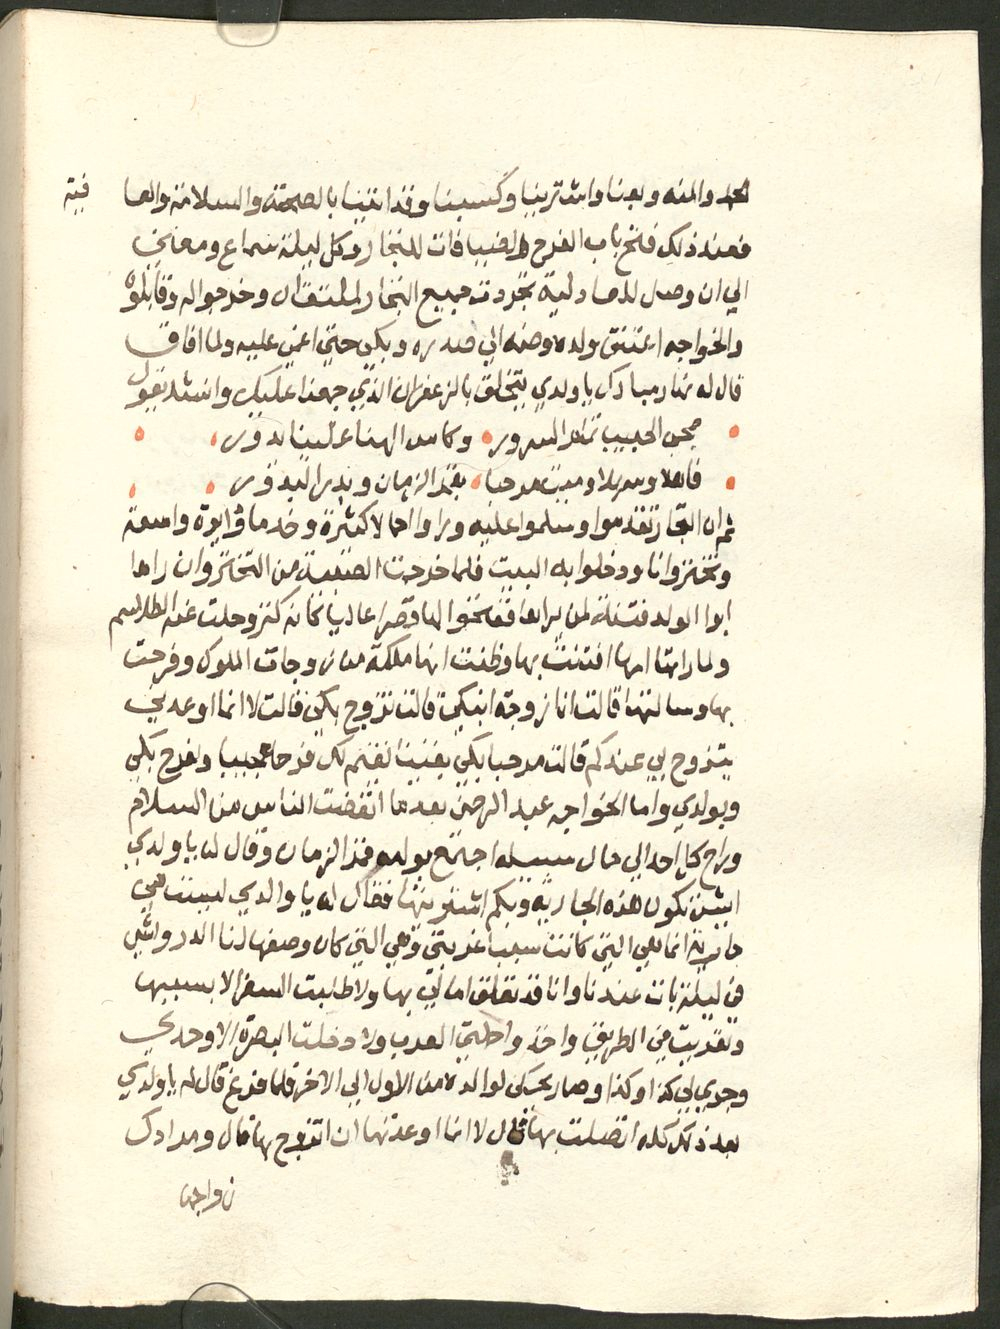 الحمد والمنه وبعنا واشترينا وكسبنا وقد اتينا بالصحة والسلامة والعا فية
فعند ذلك فتح باب الفرح والضيافات للتجار وكل ليلة سماع ومغاني
الي ان وصل للصادلية تجردت جميع التجار لملتقاه وخرجوا له وقابلوه
والخواجه اعتنق ولده وضمه الي صدره وبكي حتي اغمي عليه ولما افاق
قال له نهار مبارك يا ولدي يتخلق بالزعفران الذي جمعنا عليك وانشد يقول
مجي الحبيب تمام السرور وكاس الهنا علينا يدور
فاهلا وسهلا ومية مرحبا بقمر الزمان وبدر البدور
ثم ان التجار تقدموا وسلموا عليه وراوا احمالا كثيرة وخدما ودايرة واسعة
وتختروانا ودخلوا به البيت فلما خرجت الصبية من التختروان راها
ابوا الولد فتنة لمن يراها ففتحوا لها قصرا عاليا كانه كنز وحلت عنه الطلاسم
ولما راتها امها افتتنت بها وظنت انها ملكة من زوجات الملوك وفرحت
بها وسالتها قالت انا زوجة ابنكي قالت تزوج بكي قالت لا انما اوعدني
يتزوج بي عندكم قالت مرحبا بكي يقينا نقيم لك فرحا عجيبا ونفرح بكي
وبولدي واما الخواجه عبد الرحمن بعد ما انفضت الناس من السلام
وراح كل احد الي حال سبيله اجتمع بولده قمر الزمان وقال له يا ولدي
ايش تكون هذه الجارية وبكم اشتريتها فقال له يا والدي ليست هي
جارية انما هي التي كانت سبب غربتي وهي التي كان وصفها لنا الدرويش
في ليلة بات عندنا وانا قد تعلق امالي بها ولا طلبت السفر الا بسببها
وتعريت في الطريق واخذوا حالي العرب ولا دخلت البصرة الا وحدي
وجري لي كذا وكذا وصار يحكي لوالده من الاول الي الاخر فلما فرغ قال له يا ولدي
بعد ذلك كله اتصلت بها قال لا انما اوعدتها ان اتزوج بها قال ومرادك
زواجها